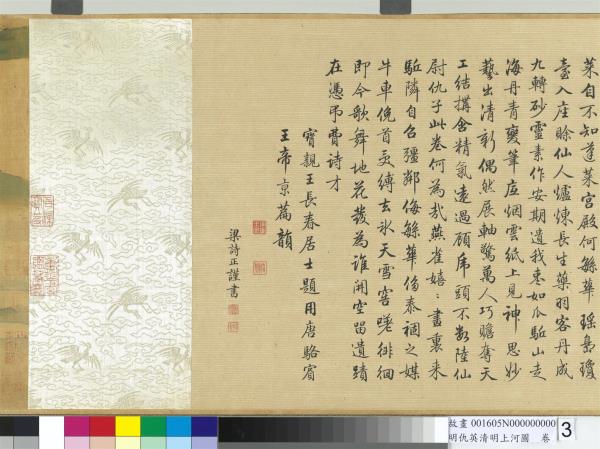 萊自不知蓬萊宮殿何緐華瑤島瓊
臺入座賒仙人爐煉長生藥羽客丹成
九轉砂靈素作安期遺我棗如瓜駈山走
海丹青變筆底烟雲紙上見神思妙
藝出清新偶然展軸驚萬人巧贍奪天
工結搆含精氣遠過顧虎頭不數陸仙
尉仇子此卷何為哉燕雀嬉〻畫裏来
駈隣自召彊鄰侮緐華侈泰禍之媒
牛車俛首縛玄氷天雪窖嗟徘徊
即今歌舞地花發為誰開空留遺蹟
在憑弔費詩才
寶親王長春居士題用唐駱賓
王帝京篇韻
梁詩正謹書
故畫 001605N000000000
明仇英清明上河圖 卷
3